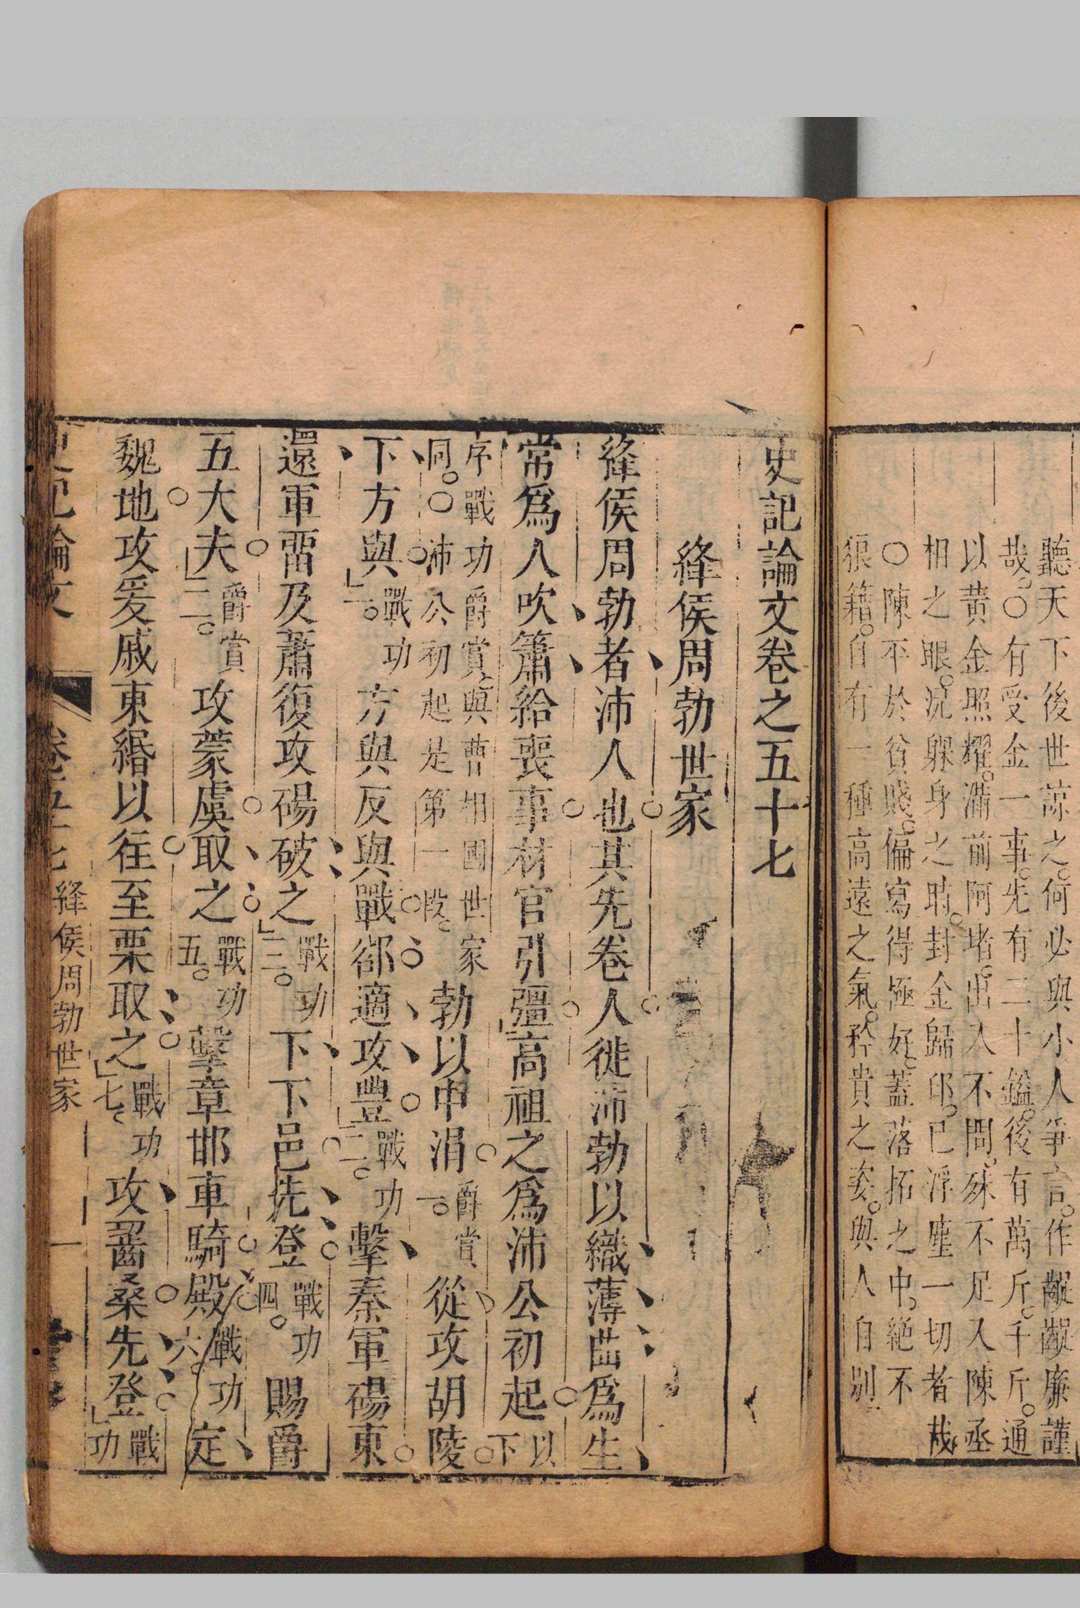 聽天下後世諒之。何必與小人爭言。作齷齪廉謹
哉。○有受金一事。先有二十鎰。後有萬斤。千斤。通
以黃金照耀。滿前阿堵。出入不問。殊不足入陳丞
相之眼。況躶身之時。封金歸印。已浮塵一切者哉
○陳平於貧賤。偏寫得極好。蓋落拓之中。絕不
狼籍。自有一種高遠之氣。矜貴之姿。與人自別
史記論文卷之五十七
絳侯周勃世家
絳侯周勃者沛人也其先卷人徙沛勃以織薄曲爲生
常爲人吹簫給喪事材官引彊高祖之爲沛公初起以下
序戰功爵賞與曹相國世家同。○沛公初起是第一段。勃以中涓爵賞一。從攻胡陵
下方與戰功一。方與反與戰卻適攻豐戰功二。擊秦軍碭東
還軍畱及蕭復攻碭破之戰功三。下下邑先登戰功四。賜爵
五大夫爵賞二。攻蒙虞取之戰功五。擊章邯車騎殿戰功六。定
魏地攻爰戚東緡以往至栗取之戰功七。攻齧桑先登戰功
史記論文 卷五十七 絳侯周勃世家 一